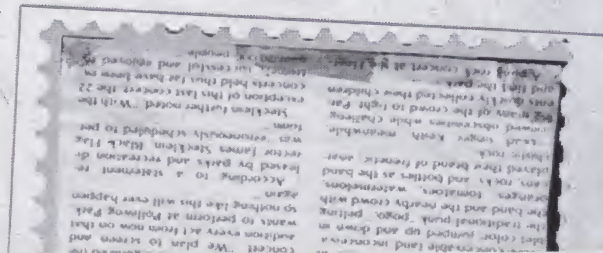 conceivable (and inconceiva-
ble) color, jumped up and down in
the traditional punk "pogo," pelting
the band and the nearby crowd with
oranges, tomatoes, watermelons,
cans, rocks and bottles as the band
played their brand of frenetic, anar-
chistic rock.
Lead singer Keith meanwhile
spewed obscenities while challeng-
ing males of the crowd to fight. Par-
ents quickly collected their children
and fled the park.
A punk rock concert at the
concert. "We plan to screen and
audition every act from now on that
wants to perform at Polliwog Park
so nothing like this will ever happen
again."
According to a statement re-
leased by parks and recreation di-
rector James Stecklein, Black Flag
was "erroneously scheduled to per-
form."
Stecklein further noted, "With the
exception of this last concert, the 22
concerts held thus far have been ex-
tremely successful and enjoyed by
people